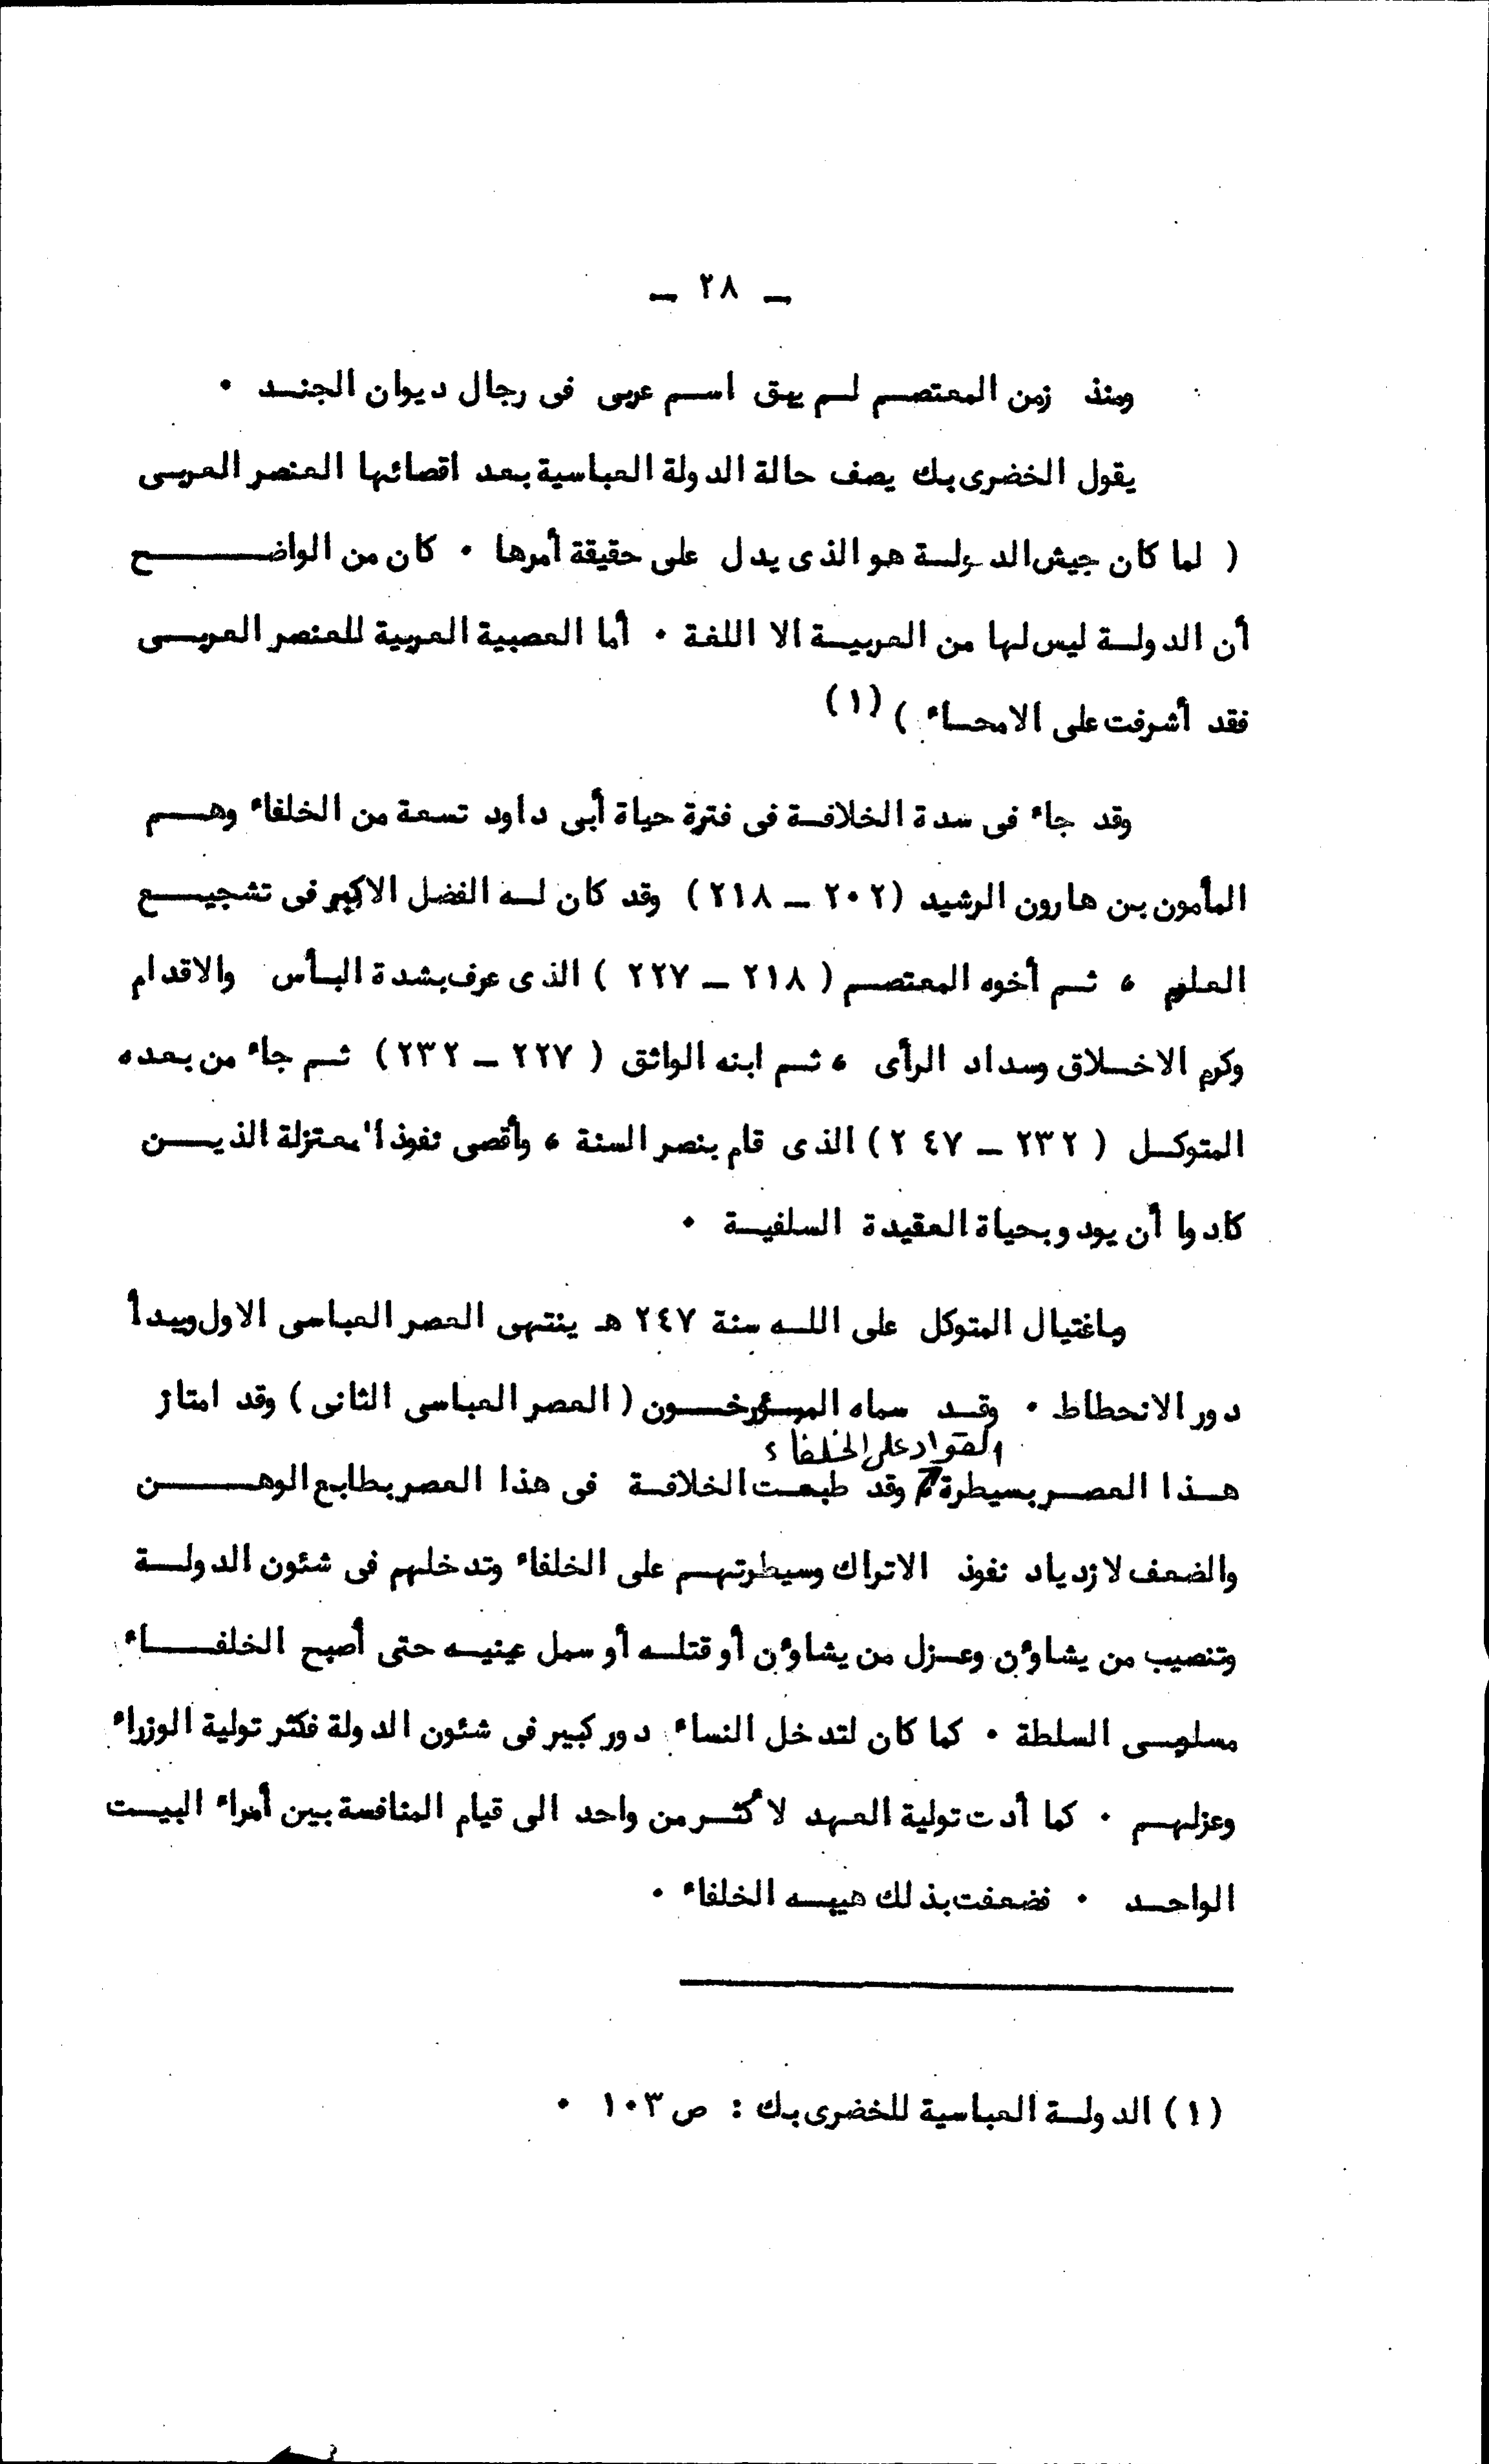 ـ ٢٨ ـ
ومنذ زمن المعتصم لم يبق اسم عربى فى رجال ديوان الجند ٠
يقول الخضرى بك يصف حالة الدولة العباسية بعد اقصائها العنصر العربى
( لما كان جيش الدولة هو الذى يدل على حقيقة أمرها ٠ كان من الواضح
أن الدولة ليس لها من العربية الا اللغة ٠ أما العصبية العربية للعنصر العربى
فقد أشرفت على الامحاء ) (١)
وقد جاء فى سدة الخلافة فى فترة حياة أبى داود تسعة من الخلفاء وهم
المأمون بن هارون الرشيد (٢٠٢ ـ ٢١٨) وقد كان له الفضل الاكبر فى تشجيع
العلوم ، ثم أخوه المعتصم ( ٢١٨ ـ ٢٢٧ ) الذى عرف بشدة البأس والاقدام
وكرم الاخلاق وسداد الرأى ، ثم ابنه الواثق ( ٢٢٧ ـ ٢٣٢) ثم جاء من بعده
المتوكل ( ٢٣٢ ـ ٢٤٧) الذى قام بنصر السنة ، وأقصى نفوذ المعتزلة الذين
كادوا أن يودو بحياة العقيدة السلفية ٠
وباغتيال المتوكل على الله سنة ٢٤٧ هـ ينتهى العصر العباسى الاول ويبدأ
دور الانحطاط ٠ وقد سماه المؤرخون ( العصر العباسى الثانى ) وقد امتاز
القواد على الخلفاء
هذا العصر بسيطرة وقد طبعت الخلافة فى هذا العصر بطابع الوهن
والضعف لازدياد نفوذ الاتراك وسيطرتهم على الخلفاء وتدخلهم فى شئون الدولة
وتنصيب من يشاؤن وعزل من يشاؤن أو قتله أو سمل عينيه حتى أصبح الخلفاء
مسلوبى السلطة ٠ كما كان لتدخل النساء دور كبير فى شئون الدولة فكثر تولية الوزراء
وعزلهم ٠ كما أدت تولية العهد لأكثر من واحد الى قيام المنافسة بين أمراء البيت
الواحد ٠ فضعفت بذلك هيبه الخلفاء ٠
(١) الدولة العباسية للخضرى بك : ص ١٠٣ ٠